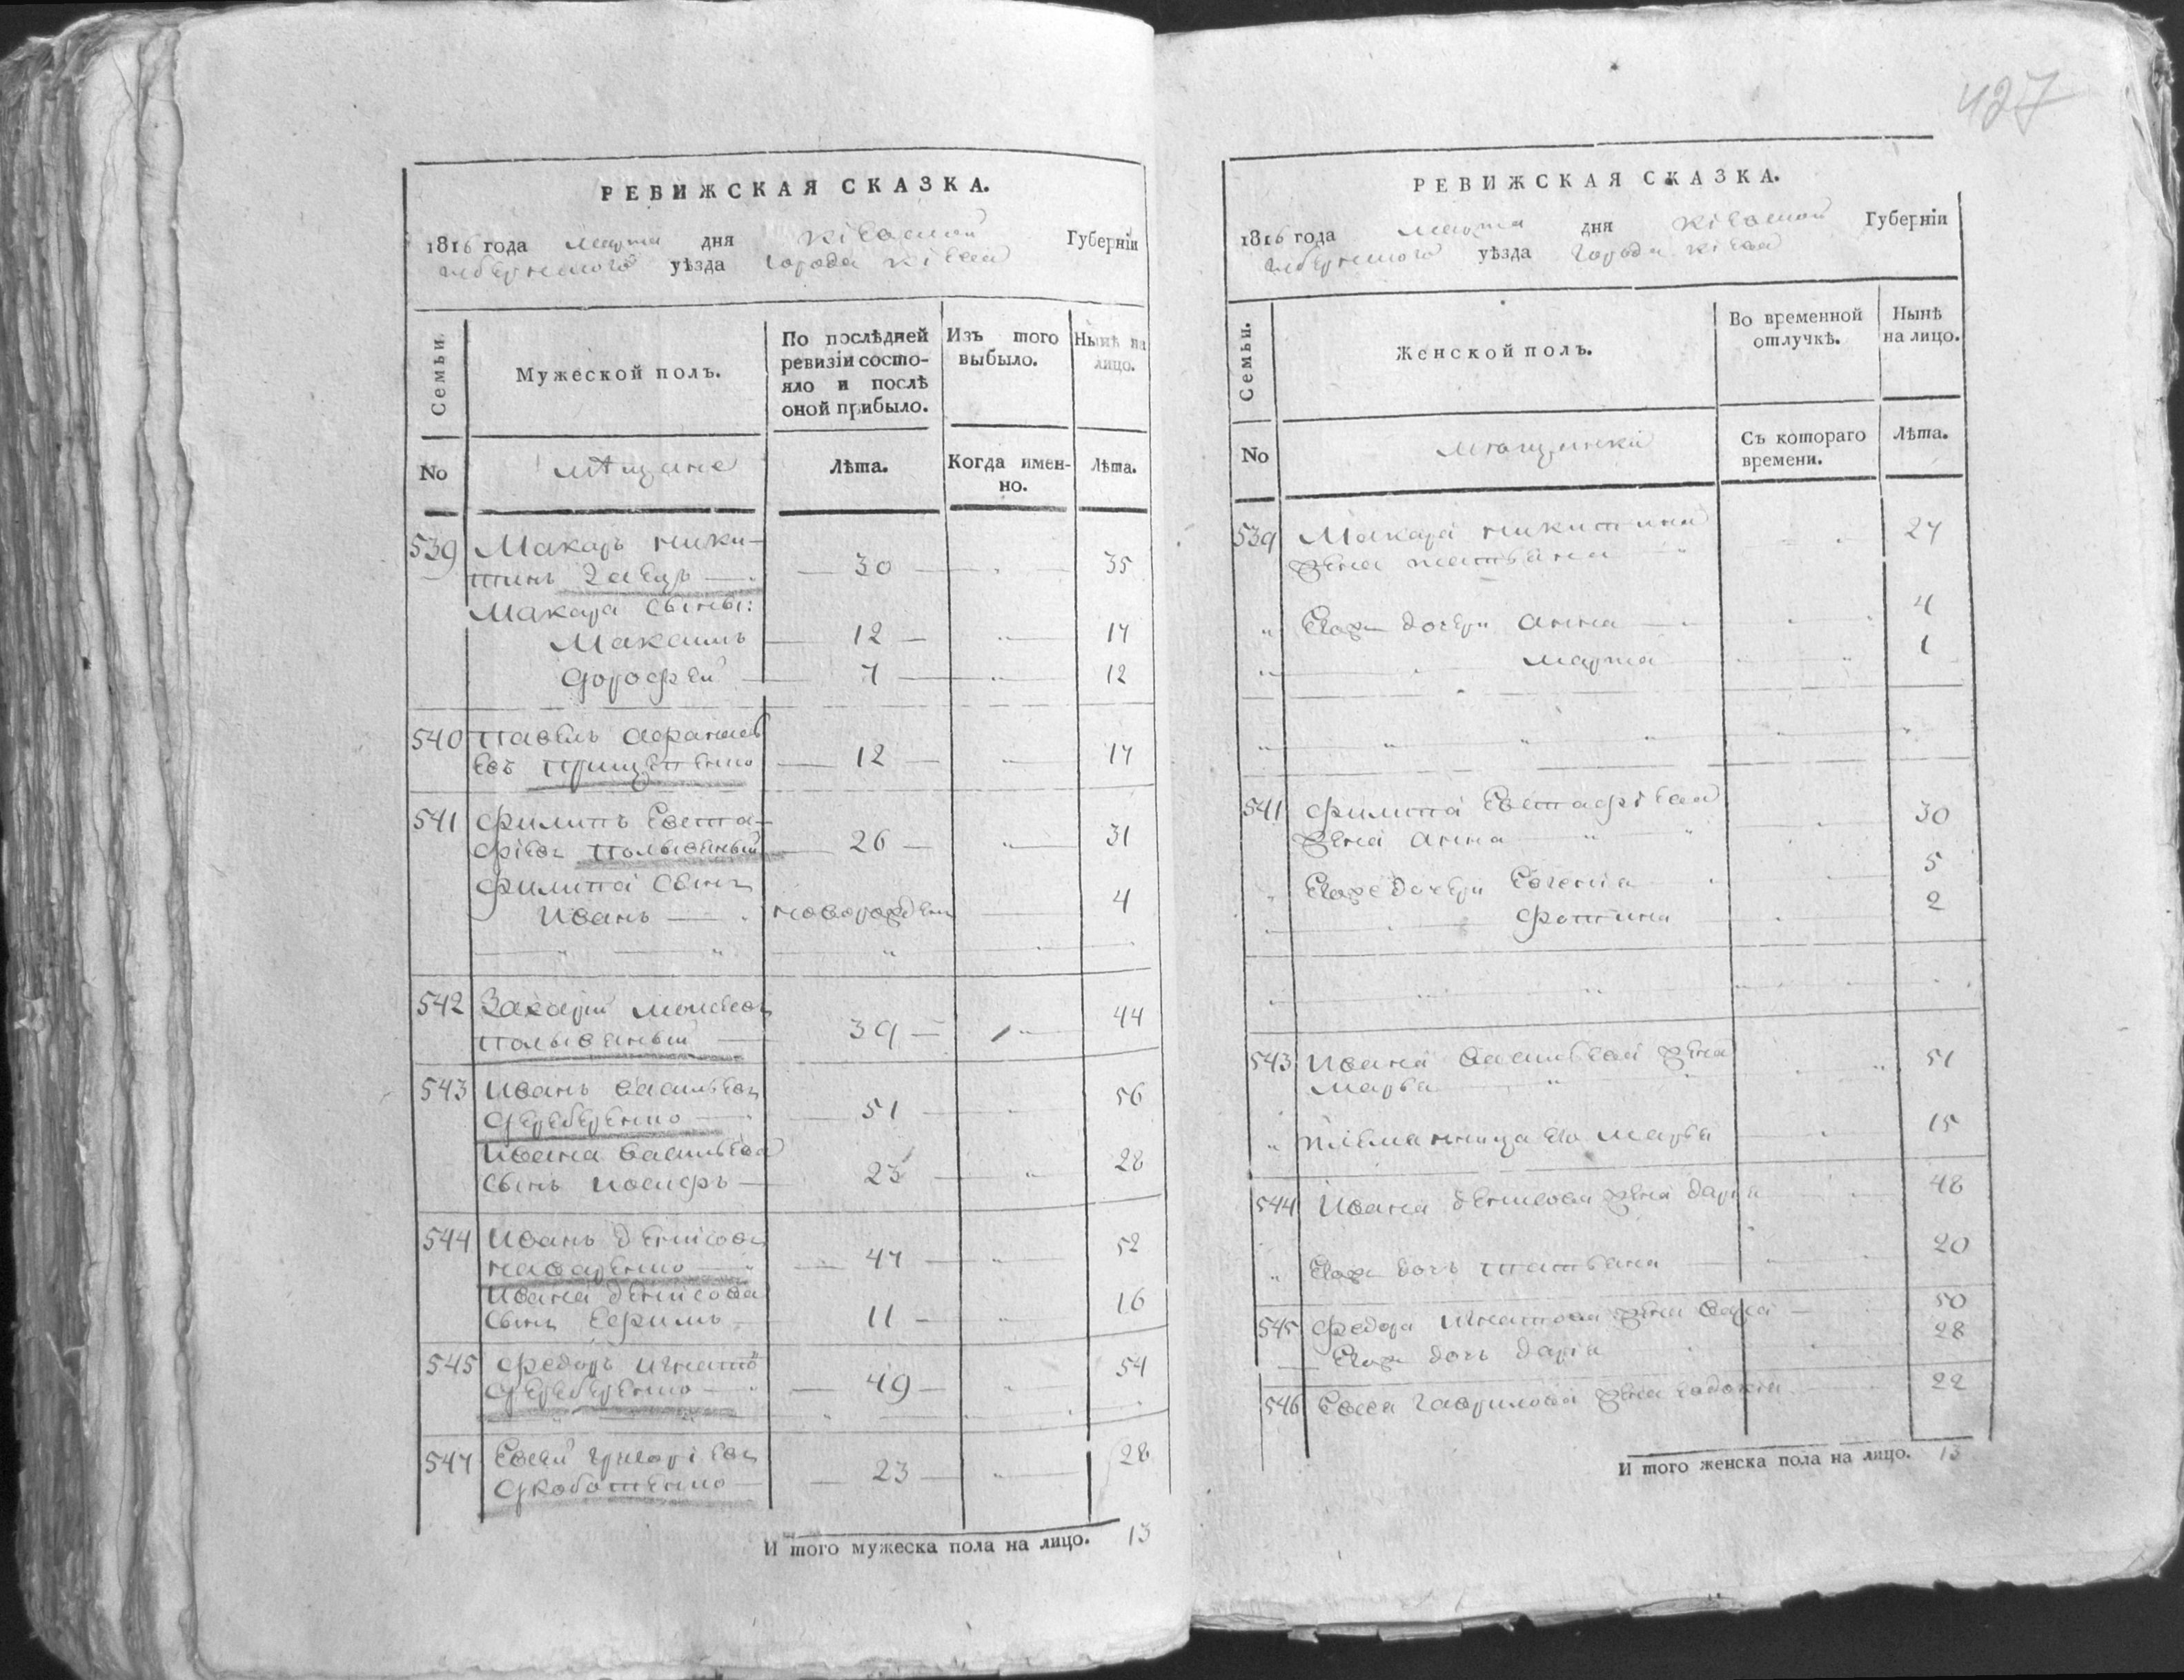 РЕВИЖСКАЯ СКАЗКА.
1816 года марта дня Кіевской Губерніи
уѣзда города Кіева
Семьи.
Мужеской полъ.
По послѣдней
ревизіи состо-
яло и послѣ
оной прибыло.
Изъ того
выбыло.
Нынѣ на
лицо.
No
мѣщане
Лѣта.
Когда имен-
но.
Лѣта.
539 Макаръ Ники-
тинъ Заецъ — 30 — 35
Макара сыны:
Максимъ — 12 — 17
Дорофей — 7 — 12
540 Павелъ
12 — 17
541 Филипъ Евста-
фіевъ Полывяный — 26 — 31
Филипа сынъ
Иванъ — новорожденъ 4
542 Захарій Моисеовъ
Полывяный — 39 — 44
543 Иванъ Васильевъ
Дереберенко — 51 — 56
Ивана Васильева
сынъ Иосифъ — 23 — 28
544 Иванъ Денисовъ
— 47 — 52
Ивана Денисова
сынъ Ефимъ — 11 — 16
545 Федоръ Игнато
Дереберенко — 49 — 54
547 Евсей Григоріевъ
— 23 — 28
И того мужеска пола на лицо. 13
427
РЕВИЖСКАЯ СКАЗКА.
1816 года марта дня Кіевской Губерніи
уѣзда города Кіева
Семьи.
Женской полъ.
Во временной
отлучкѣ.
Нынѣ
на лицо.
No
мѣщанки
Съ котораго
времени.
Лѣта.
539 Макара Никитина
жена Татьяна 27
Егожъ дочери Анна 4
Марта 1
541 Филипа Евстафіева
жена Анна 30
Егоже дочери Евгенія 5
Фотина 2
543 Ивана Васильева жена
Марья 51
племянница его Марья 15
544 Ивана Денисова жена Дарія 48
Егожъ дочь Татьяна 20
545 Федора Игнатова жена 50
Егожъ дочь Дарія 28
546 Евсея Гаврилова жена Евдокія 22
И того женска пола на лицо. 13